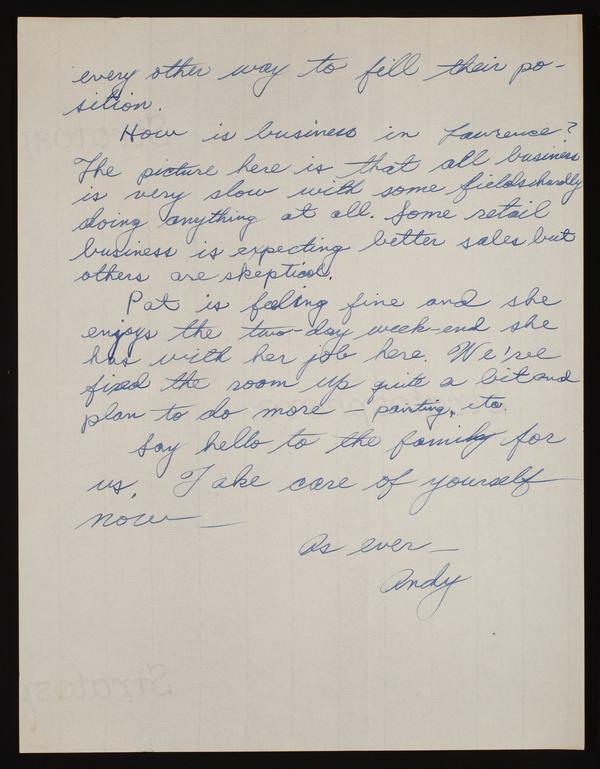 every other way to fill their po-
sition.
How is business in Lawrence?
The picture here is that all business
is very slow with some fields hardly
doing anything at all. Some retail
business is expecting better sales but
others are skeptical.
Pat is feeling fine and she
enjoys the two-day week-end she
has with her job here. We've
fixed the room up quite a bit and
plan to do more – painting, etc.
Say hello to the family for
us. Take care of yourself
now —
As ever —
Andy